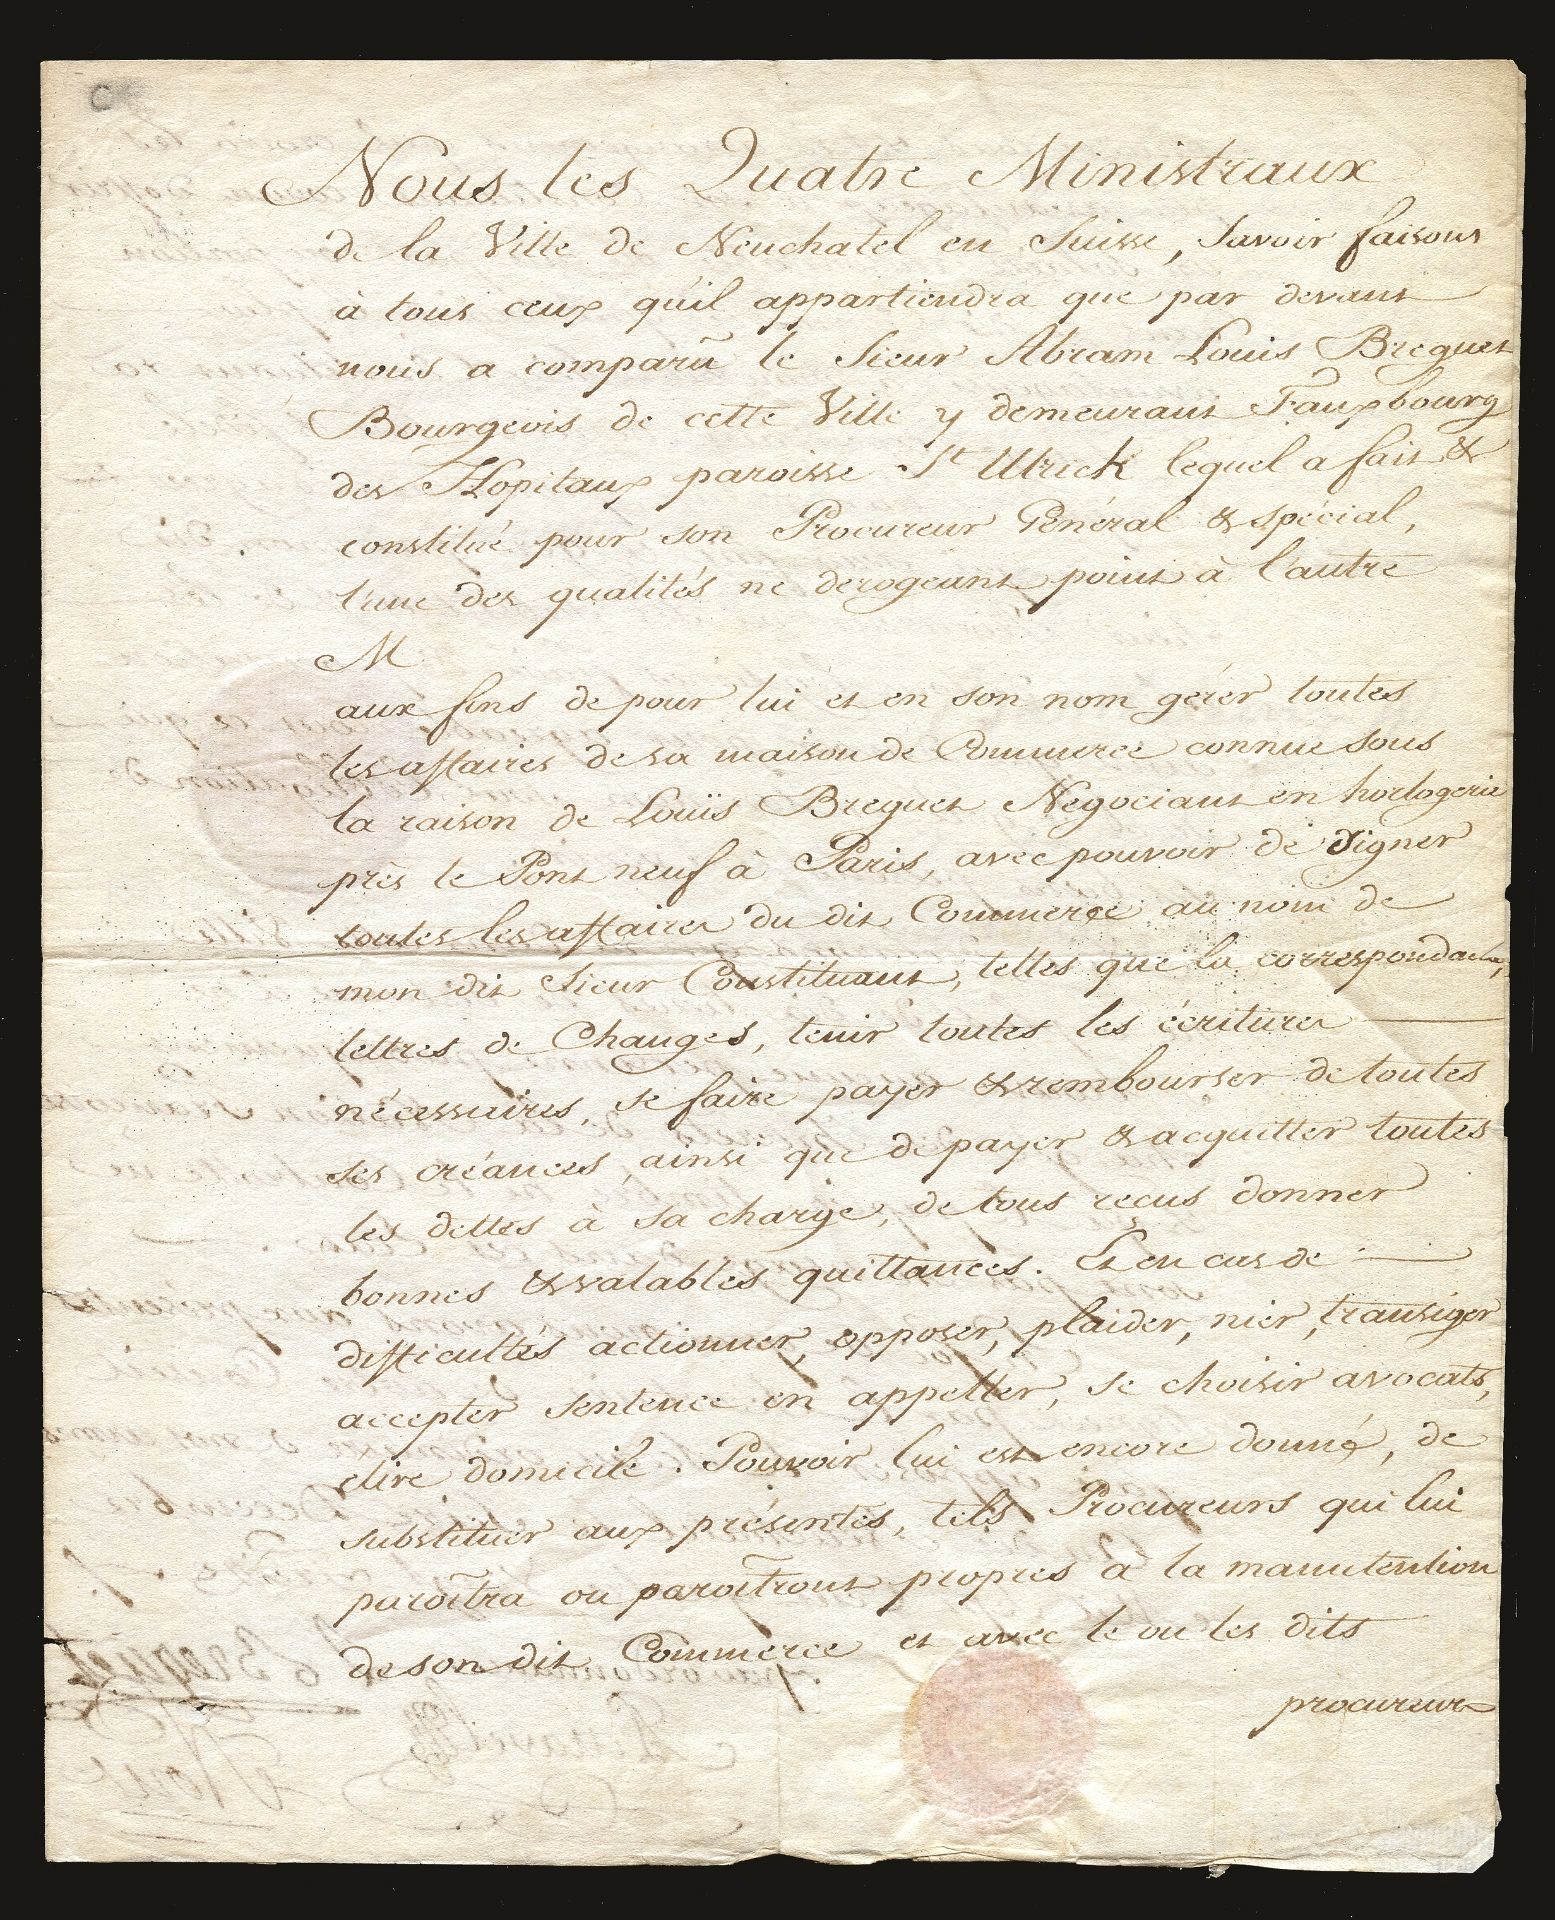 C
Nous les Quatre Ministraux
de la Ville de Neuchatel en Suisse, Savoir faisons
à tous ceux qu'il appartiendra que par devant
nous a comparū le Sieur Abram Louis Breguet
Bourgeois de cette Ville y demeurant Fauxbourg
des Hopitaux paroisse St Ulrick lequel a fait &
constitué pour son Procureur Général & spécial,
l'une des qualités ne derogeant point à l'autre
M
aux fins de pour lui et en son nom gérer toutes
les affaires de sa maison de Commerce connue sous
la raison de Louïs Breguet Negociant en horlogerie
près le Pont neuf à Paris, avec pouvoir de signer
toutes les affaires du dit Commerce au nom de
mon dit Sieur Constituant, telles que la correspondance,
lettres de Changes, tenir toutes les écritures
nécessaires, se faire payer & rembourser de toutes
ses créances, ainsi que de payer & acquitter toutes
les dettes à sa charge, de tous reçus donner
bonnes & valables quittances. Et en cas de
difficultés actionner, opposer, plaider, nier, transiger
accepter sentence en appeller, se choisir avocats,
élire domicile. Pouvoir lui est encore donné, de
substituer aux présentes, tels Procureurs qui lui
paroîtra ou paroîtront propres à la manutention
de son dit Commerce et avec le ou les dits
procureurs